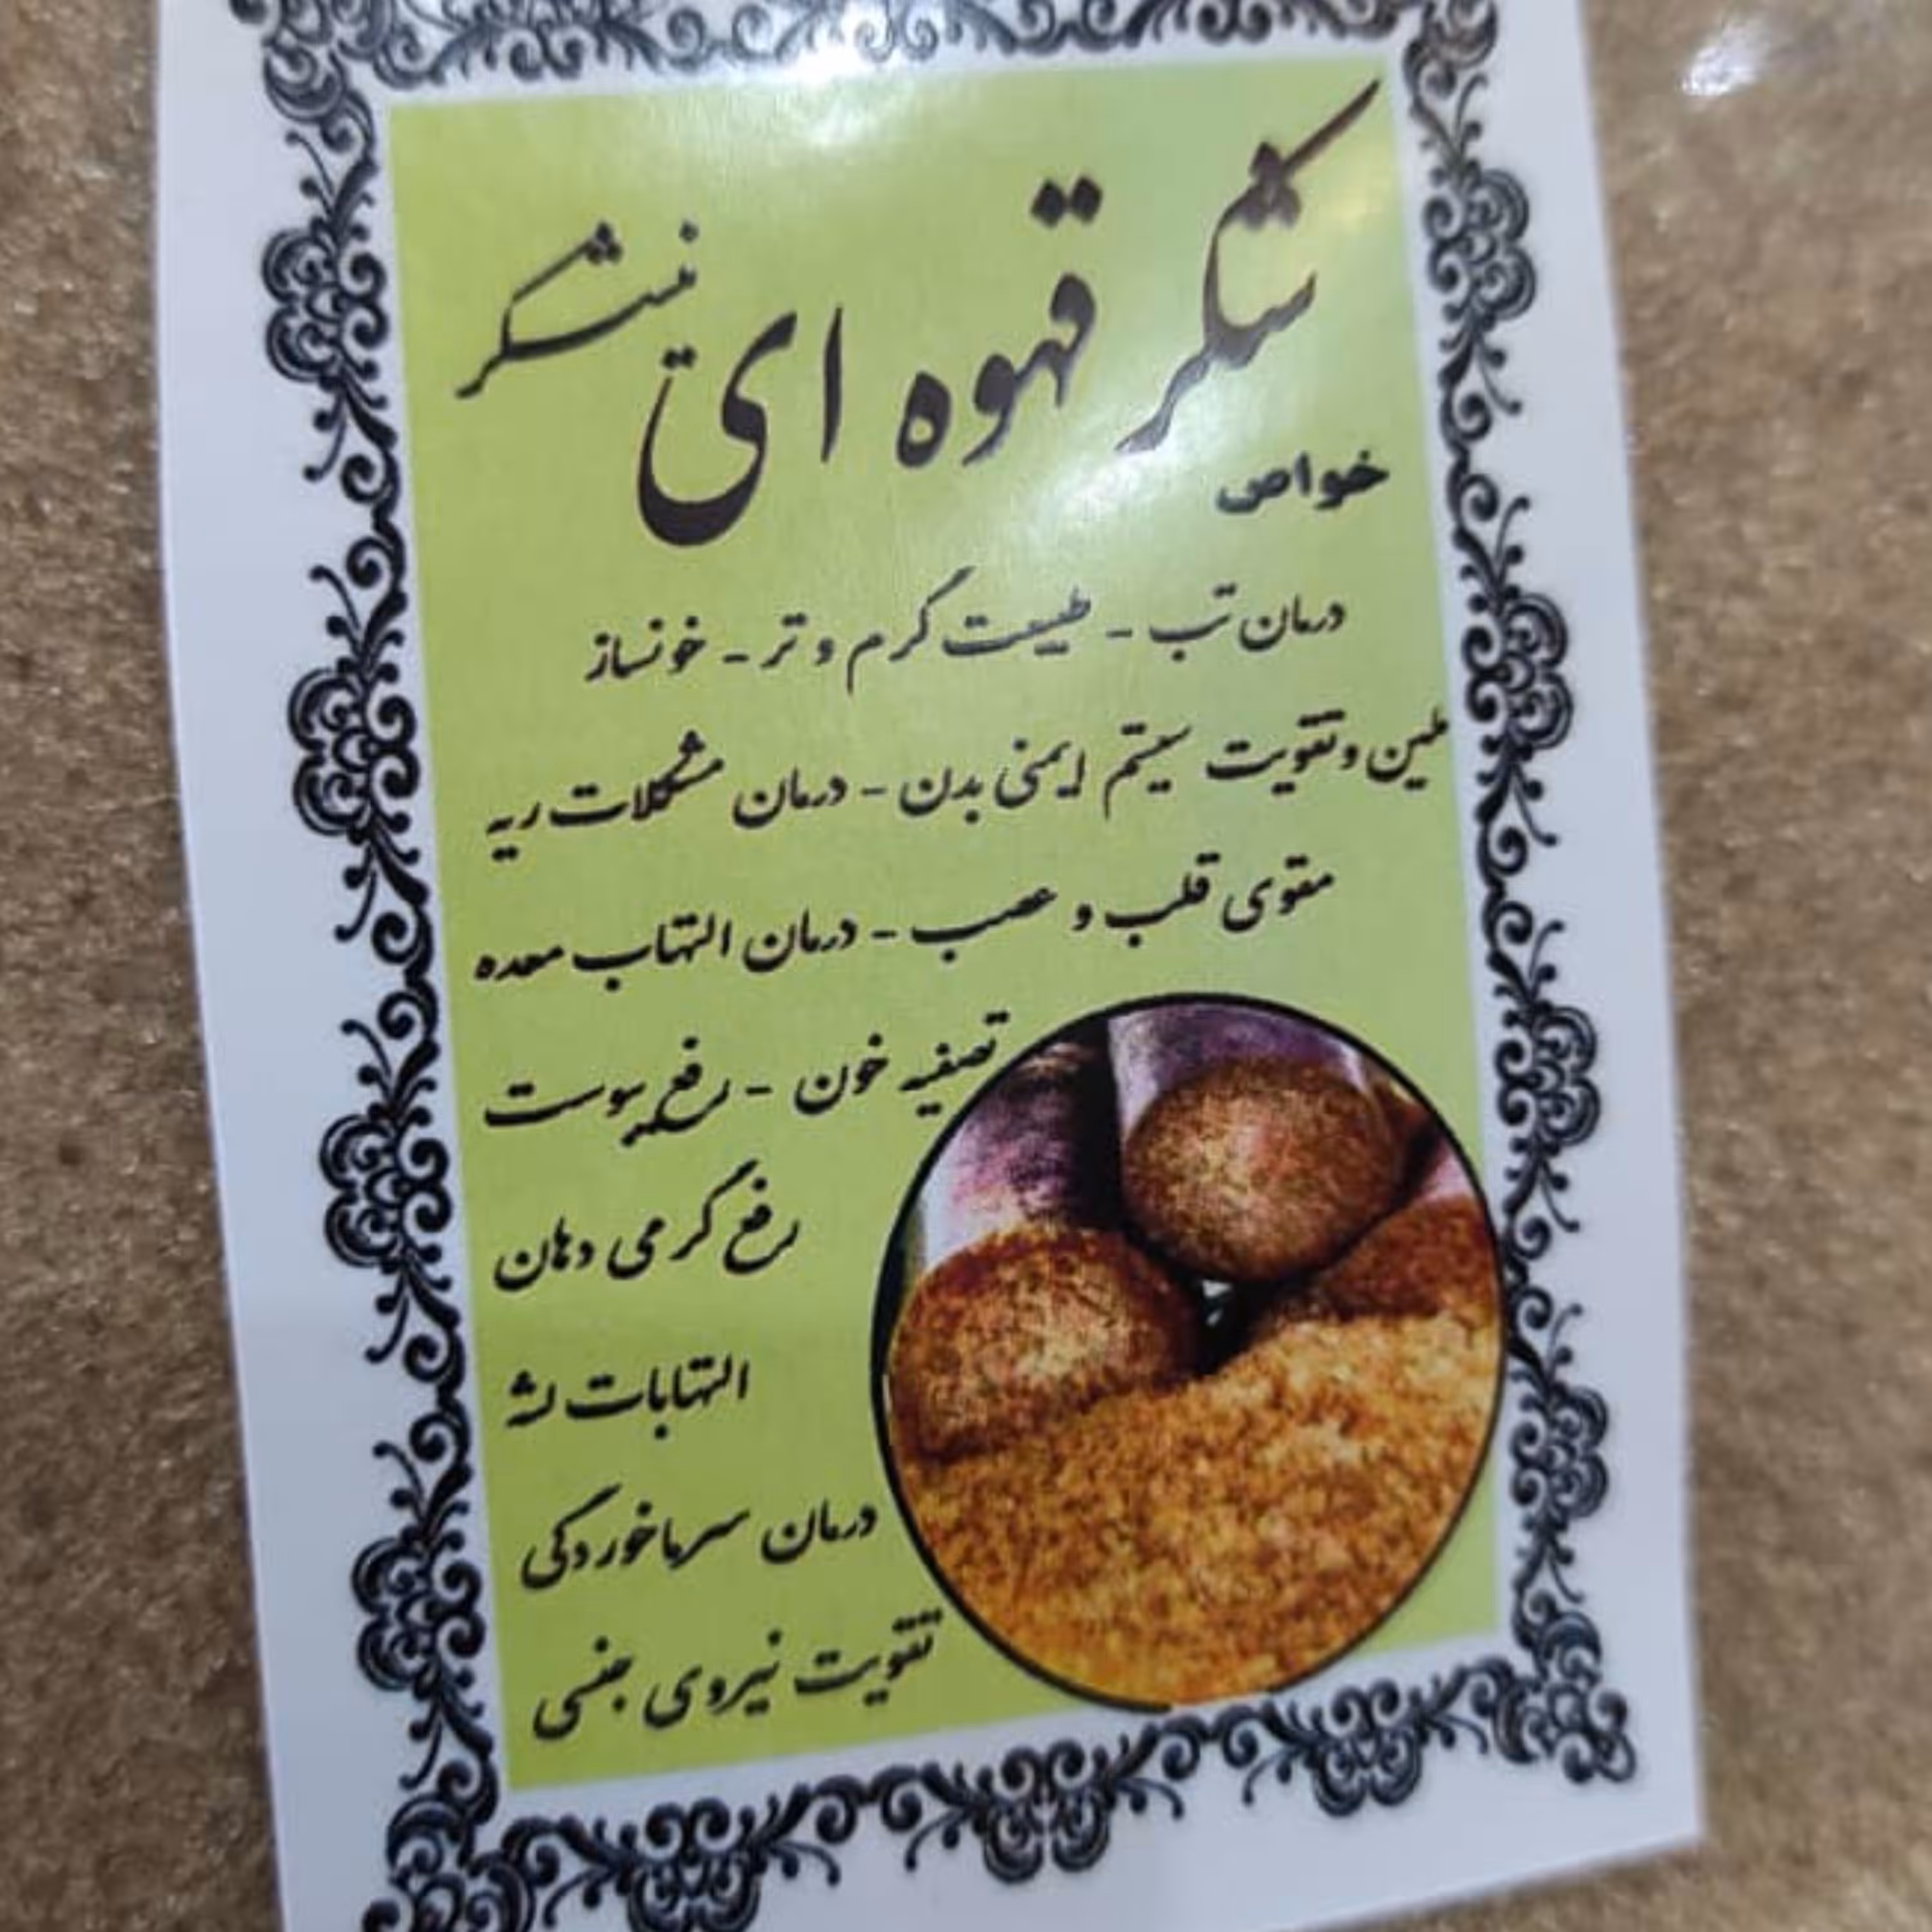 شکر قهوه ای نیشکر
خواص
درمان تب - طبیعت گرم و تر - خونساز
ملین و تقویت سیستم ایمنی بدن - درمان مشکلات ریه
مقوی قلب و عصب - درمان التهاب معده
تصفیه خون - رفع یبوست
رفع گرمی دهان
التهابات لثه
درمان سرماخوردگی
تقویت نیروی جنسی